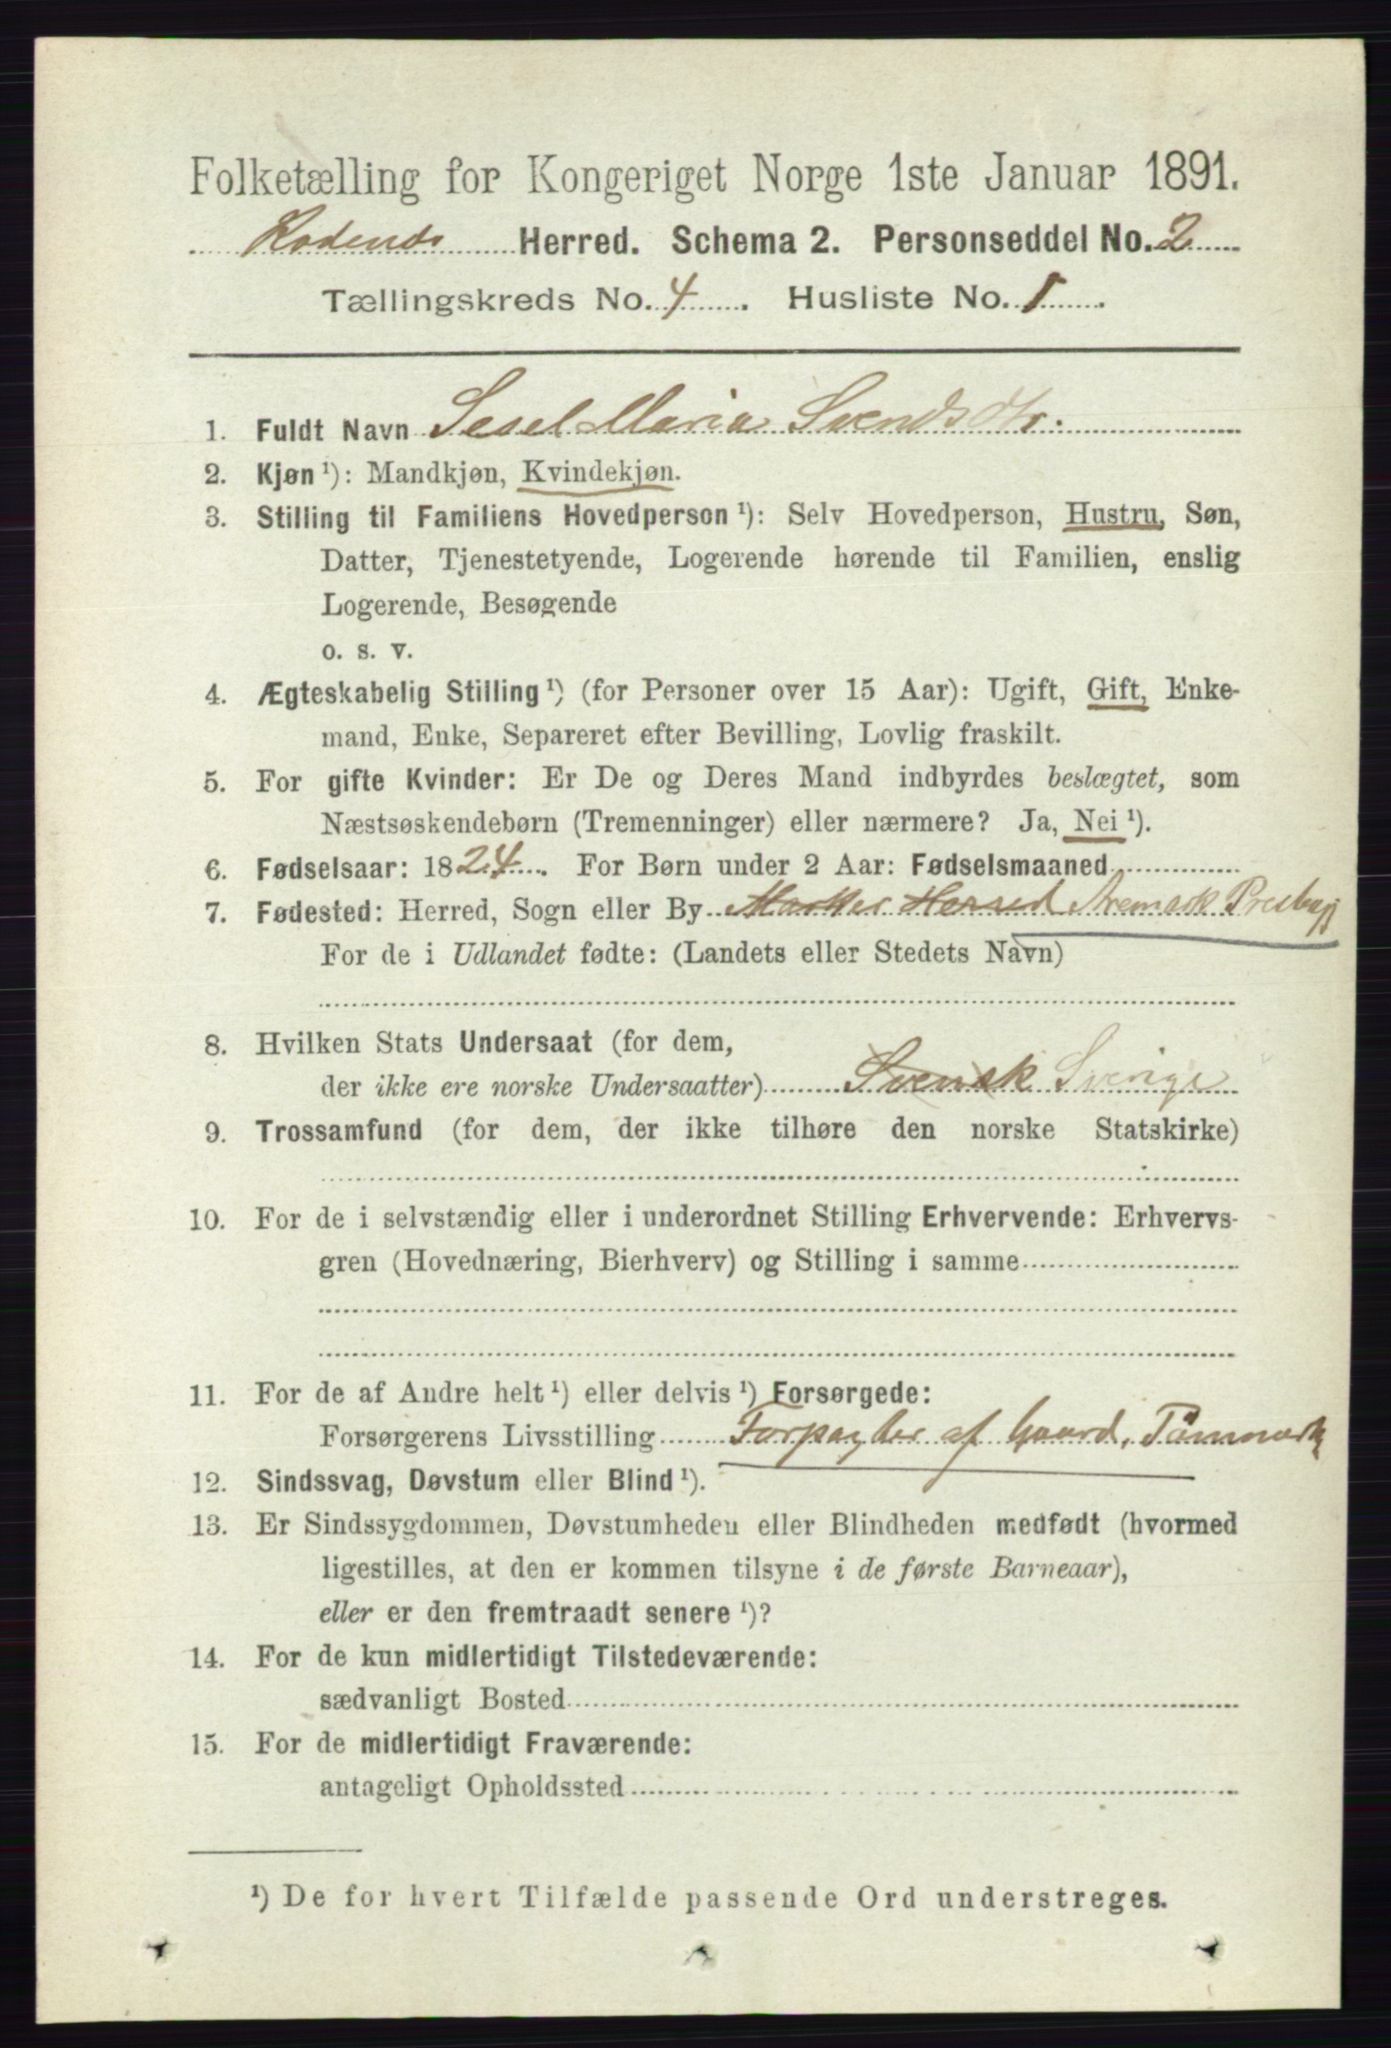 Folketælling for Kongeriget Norge 1ste Januar 1891.
Rødenes Herred. Schema 2. Personseddel No. 2
Tællingskreds No. 4. Husliste No. 1.
1. Fuldt Navn Sesel Maria Svendsdtr.
2. Kjøn ¹): Mandkjøn, Kvindekjøn.
3. Stilling til Familiens Hovedperson ¹): Selv Hovedperson, Hustru, Søn,
Datter, Tjenestetyende, Logerende hørende til Familien, enslig
Logerende, Besøgende
o. s. v.
4. Ægteskabelig Stilling ¹) (for Personer over 15 Aar): Ugift, Gift, Enke-
mand, Enke, Separeret efter Bevilling, Lovlig fraskilt.
5. For gifte Kvinder: Er De og Deres Mand indbyrdes beslægtet, som
Næstsøskendebørn (Tremenninger) eller nærmere? Ja, Nei ¹).
6. Fødselsaar: 1824. For Børn under 2 Aar: Fødselsmaaned
7. Fødested: Herred, Sogn eller By Marker Herred Aremark Præstegj
For de i Udlandet fødte: (Landets eller Stedets Navn)
8. Hvilken Stats Undersaat (for dem,
der ikke ere norske Undersaatter) Svensk Sverige
9. Trossamfund (for dem, der ikke tilhøre den norske Statskirke)
10. For de i selvstændig eller i underordnet Stilling Erhvervende: Erhvervs-
gren (Hovednæring, Bierhverv) og Stilling i samme
11. For de af Andre helt ¹) eller delvis ¹) Forsørgede:
Forsørgerens Livsstilling Forpagter af Gaard,
12. Sindssvag, Døvstum eller Blind ¹).
13. Er Sindssygdommen, Døvstumheden eller Blindheden medfødt (hvormed
ligestilles, at den er kommen tilsyne i de første Barneaar),
eller er den fremtraadt senere ¹)?
14. For de kun midlertidigt Tilstedeværende:
sædvanligt Bosted
15. For de midlertidigt Fraværende:
antageligt Opholdssted
¹) De for hvert Tilfælde passende Ord understreges.